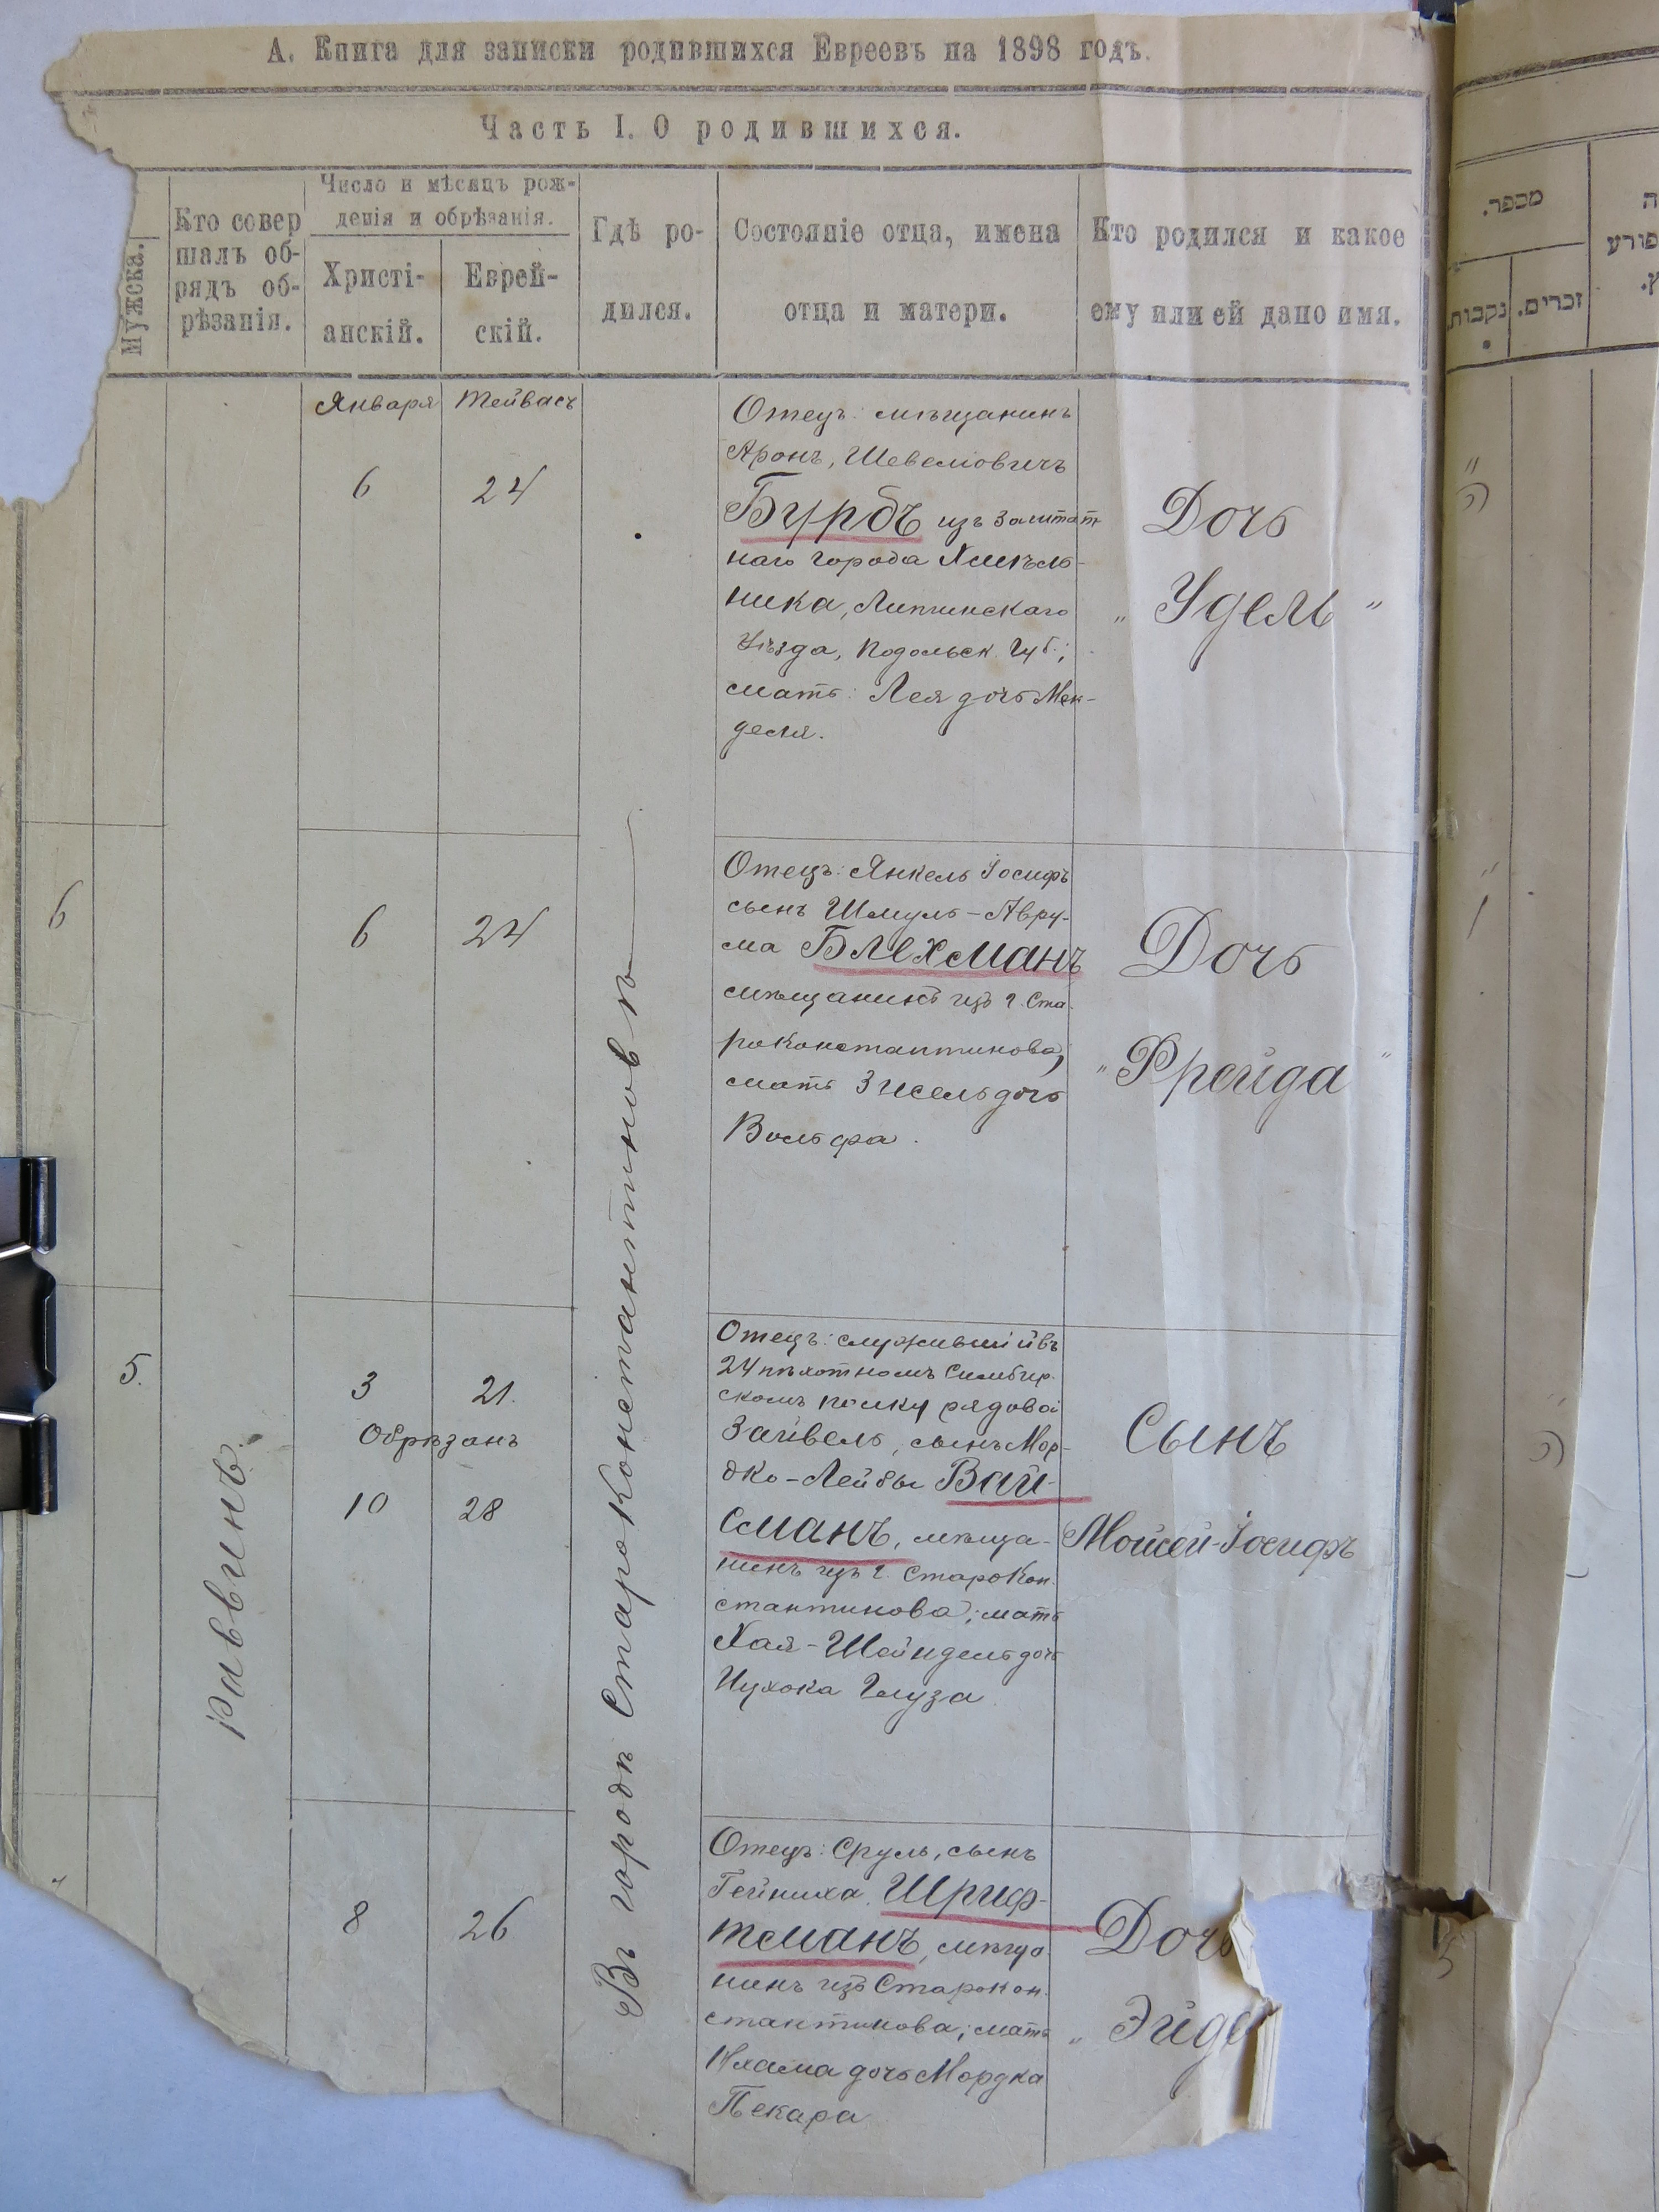 А. Книга для записки родившихся Евреевъ на 1898 годъ.
Часть I. О родившихся.
Мужска.
Кто совер
шалъ об-
рядъ об-
рѣзанія.
Число и мѣсяцъ рож-
денія и обрѣзанія.
Христі-
анскій.
Еврей-
скій.
Гдѣ ро-
дился.
Состояніе отца, имена
отца и матери.
Кто родился и какое
ему или ей дано имя.
Января
Тейвасъ
6
24
Отецъ: мѣщанинъ
Аронъ, Шевеліовичъ
Бурбъ изъ заштат-
наго города Хмѣль-
ника, Литинскаго
уѣзда, Подольск. Губ.;
мать: Лея дочь Мен-
деля.
Дочь
"Удель"
6
6
24
Отецъ: Янкель Іосифъ
сынъ Шмуль-Авру-
ма Блехманъ
мѣщанинъ изъ г. Ста-
роконстантинова;
мать Зисель дочь
Вольфа.
Дочь
"Фрейда"
5.
3
21.
Обрѣзанъ
10
28
Отецъ: служившій въ
24 пѣхотномъ Симбир-
скомъ полку рядовой
Зайвель, сынъ Мор-
дко-Лейбы Вай-
сманъ, мѣща-
нинъ изъ г. Старокон-
стантинова; мать
Хая-Шейндель дочь
Нухока Глуза
Сынъ
Мойсей-Іосифъ
8
26
Отецъ: Сруль, сынъ
Гейниха Шриф-
тманъ, мѣща-
нинъ изъ Старокон-
стантинова; мать
Нхама дочь Мордка
Пекара
Дочь
"Эйде
Раввинъ.
Въ городѣ Староконстантиновѣ
מספר.
נקבות.
זכרים.
פורע